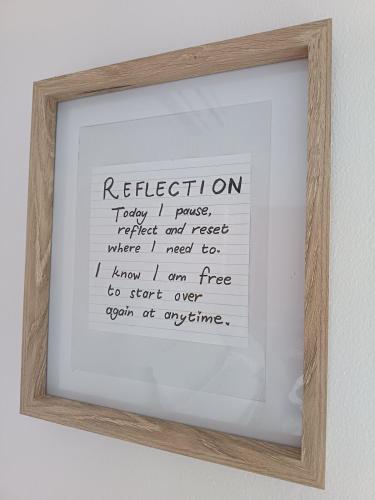 REFLECTION
Today I pause,
reflect and reset
where I need to.
I know I am free
to start over
again at anytime.